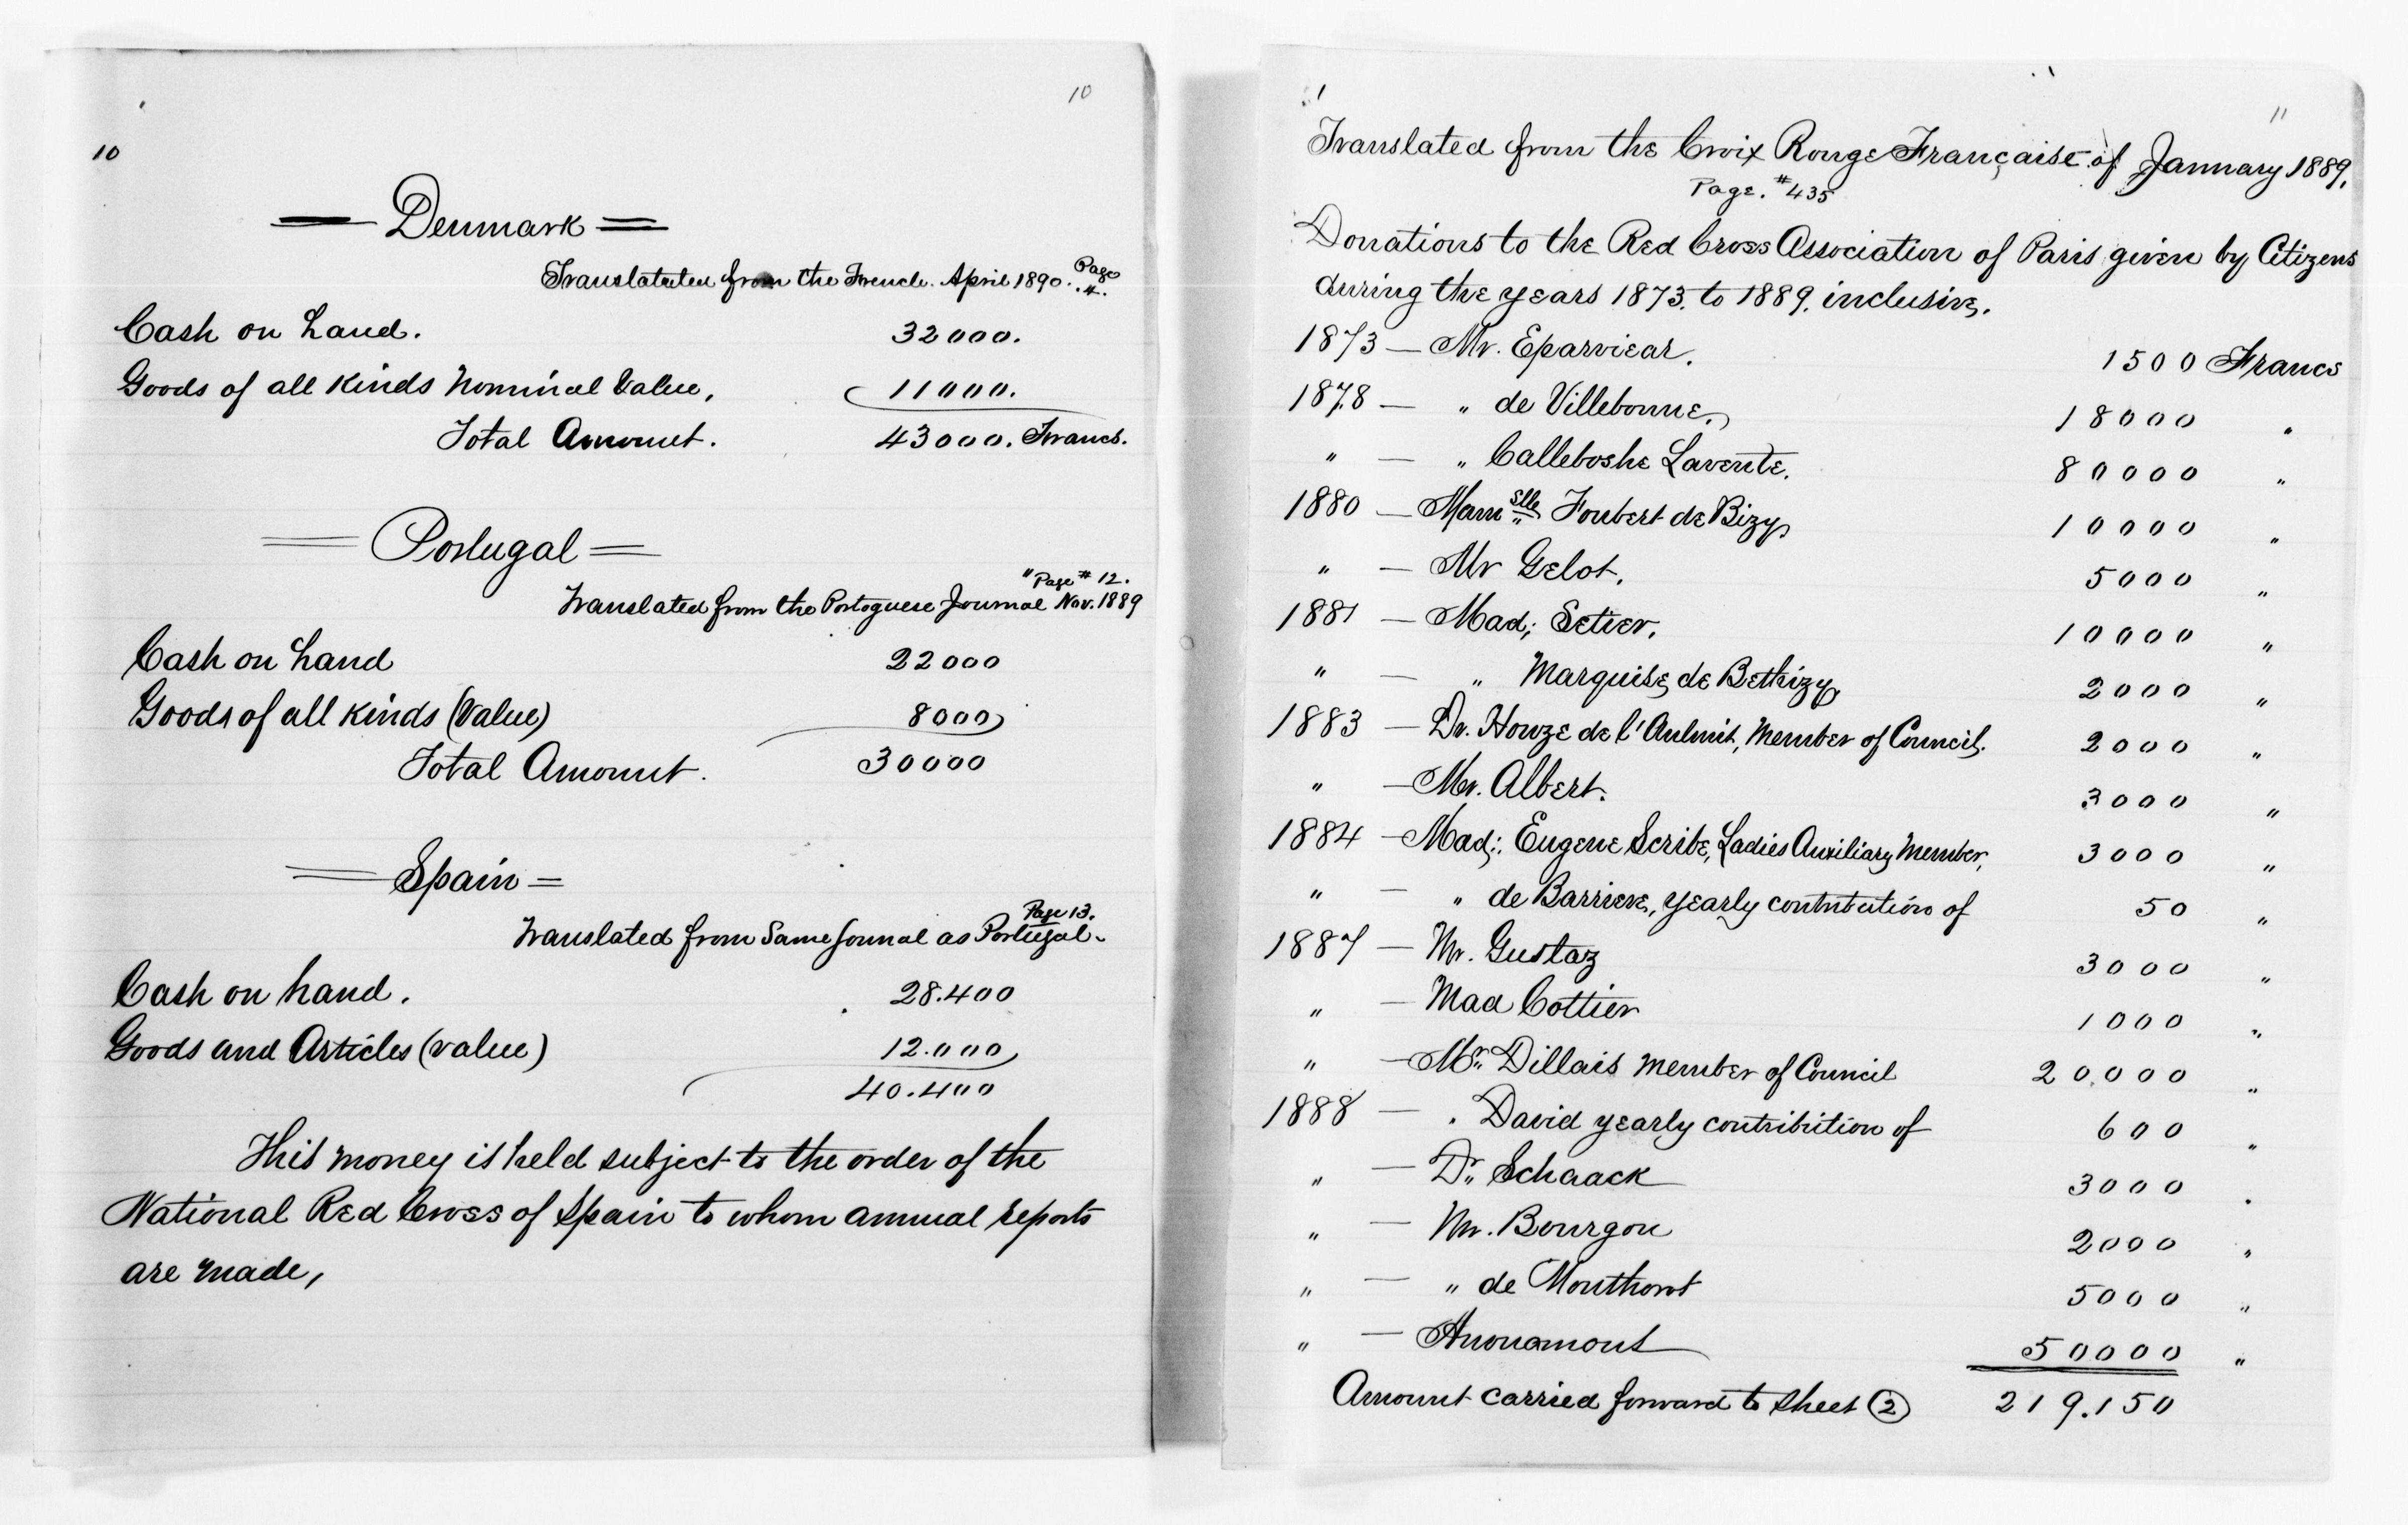 10
10
Denmark
Translateted from the French. April 1890. Page 4.
Cash on hand. 32000.
Goods of all Kinds Nominal Value, 11000.
Total Amount. 43000. Francs.
Portugal
"Page # 12.
Translated from the Portoguese Journal Nov. 1889
Cash on hand 22000
Goods of all Kinds (Value) 8000
Total Amount. 30000
Spain
Page 13.
Translated from Same Jounal as Portugal.
Cash on hand. 28.400
Goods and Articles (value) 12.000
40.400
This money is held subject to the order of the
National Red Cross of Spain to whom annual reports
are made,
11
Translated from the Croix Rouge Française of January 1889.
Page. # 435
Donations to the Red Cross Association of Paris given by Citizens
during the years 1873. to 1889. inclusive.
1873 — Mr. Eparviear. 1500 Francs
1878 — " de Villebonne. 18000 "
" — " Calleboshe Lavente. 80000 "
1880 — Mamslle Foubert de Bizy 10000 "
" — Mr Gelot. 5000 "
1881 — Mad; Setier. 10000 "
" — " Marquise de Bethizy 2000 "
1883 — Dr. Houze de l'Aulmit, Member of Council. 2000 "
" — Mr. Albert. 3000 "
1884 — Mad;. Eugene Scribe, Ladies Auxiliary Member, 3000 "
" — " de Barriere, yearly contribution of 50 "
1887 — Mr. Gustaz 3000 "
" — Mad Cottier 1000 "
" — Mr. Dillais Member of Council 20,000 "
1888 — . David yearly contribution of 600 "
" — Dr. Schaack 3000 "
" — Mr. Bourgou 2000 "
" — " de Mouthorot 5000 "
" — Anonamous 50000 "
Amount carried forward to sheet (2) 219.150